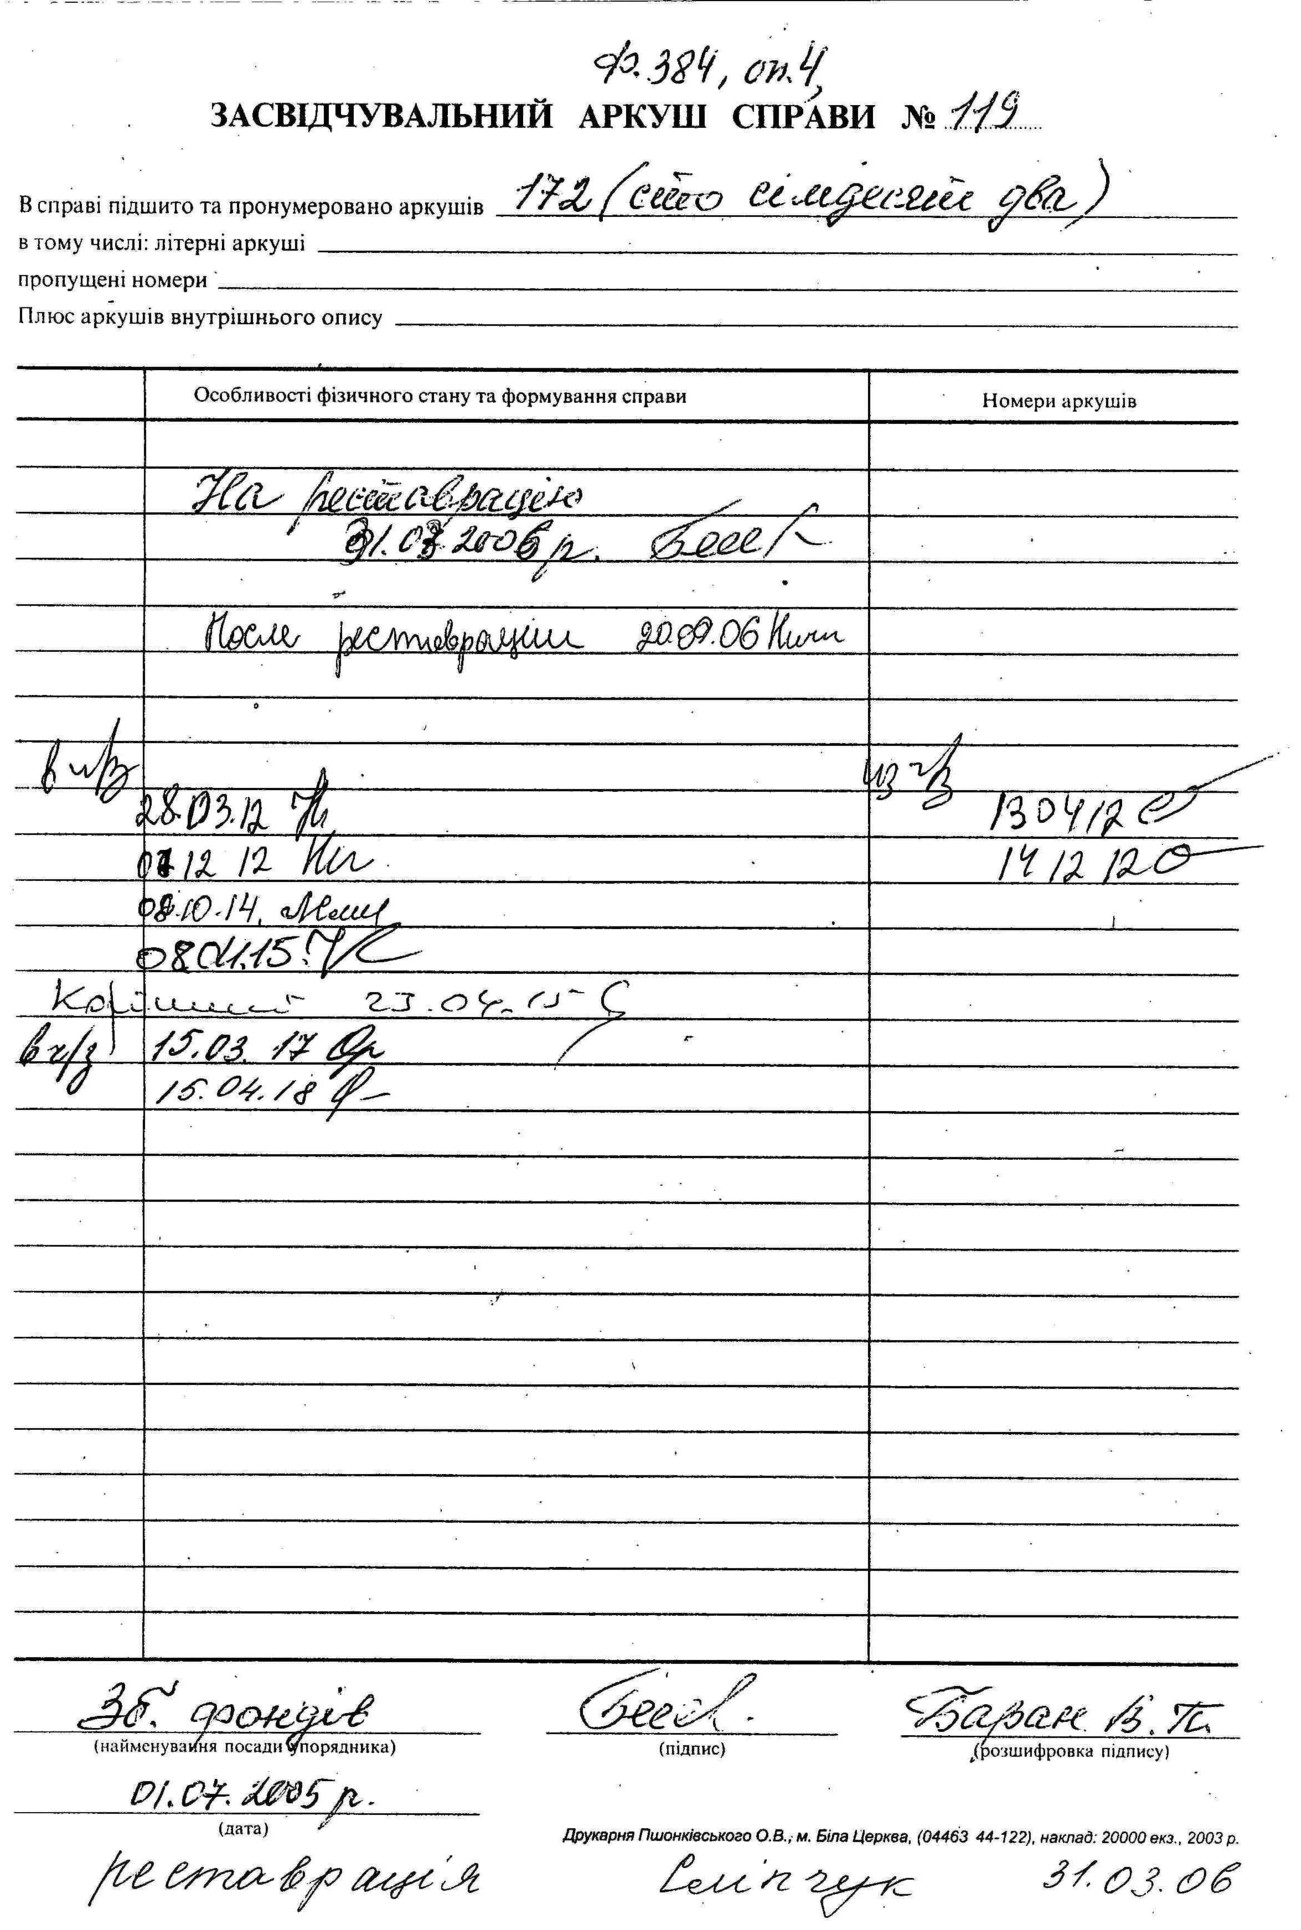 Ф. 384, оп. 4,
ЗАСВІДЧУВАЛЬНИЙ АРКУШ СПРАВИ № 119
В справі підшито та пронумеровано аркушів 172 (сто сімдесят два)
в тому числі: літерні аркуші
пропущені номери
Плюс аркушів внутрішнього опису
Особливості фізичного стану та формування справи Номери аркушів
На реставрацію
31.03.2006 р.
После реставрации 20.09.06
в ч/з из ч/з
28.03.12 130412
07 12 12 14 12 12
08.10.14.
08.04.15.
23.04.15
в ч/з 15.03.17
15.04.18
Зб. фондів Баран В. П.
(найменування посади упорядника) (підпис) (розшифровка підпису)
01.07.2005 р.
(дата)
Друкарня Пшонківського О.В., м. Біла Церква, (04463 44-122), наклад: 20000 екз., 2003 р.
реставрація Сліпчук 31.03.06